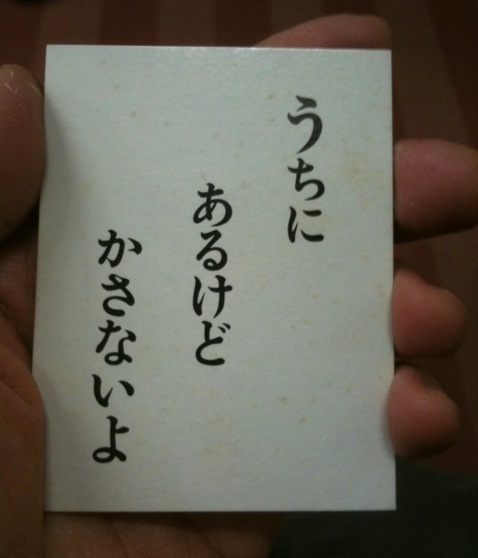 うちに
あるけど
かさないよ